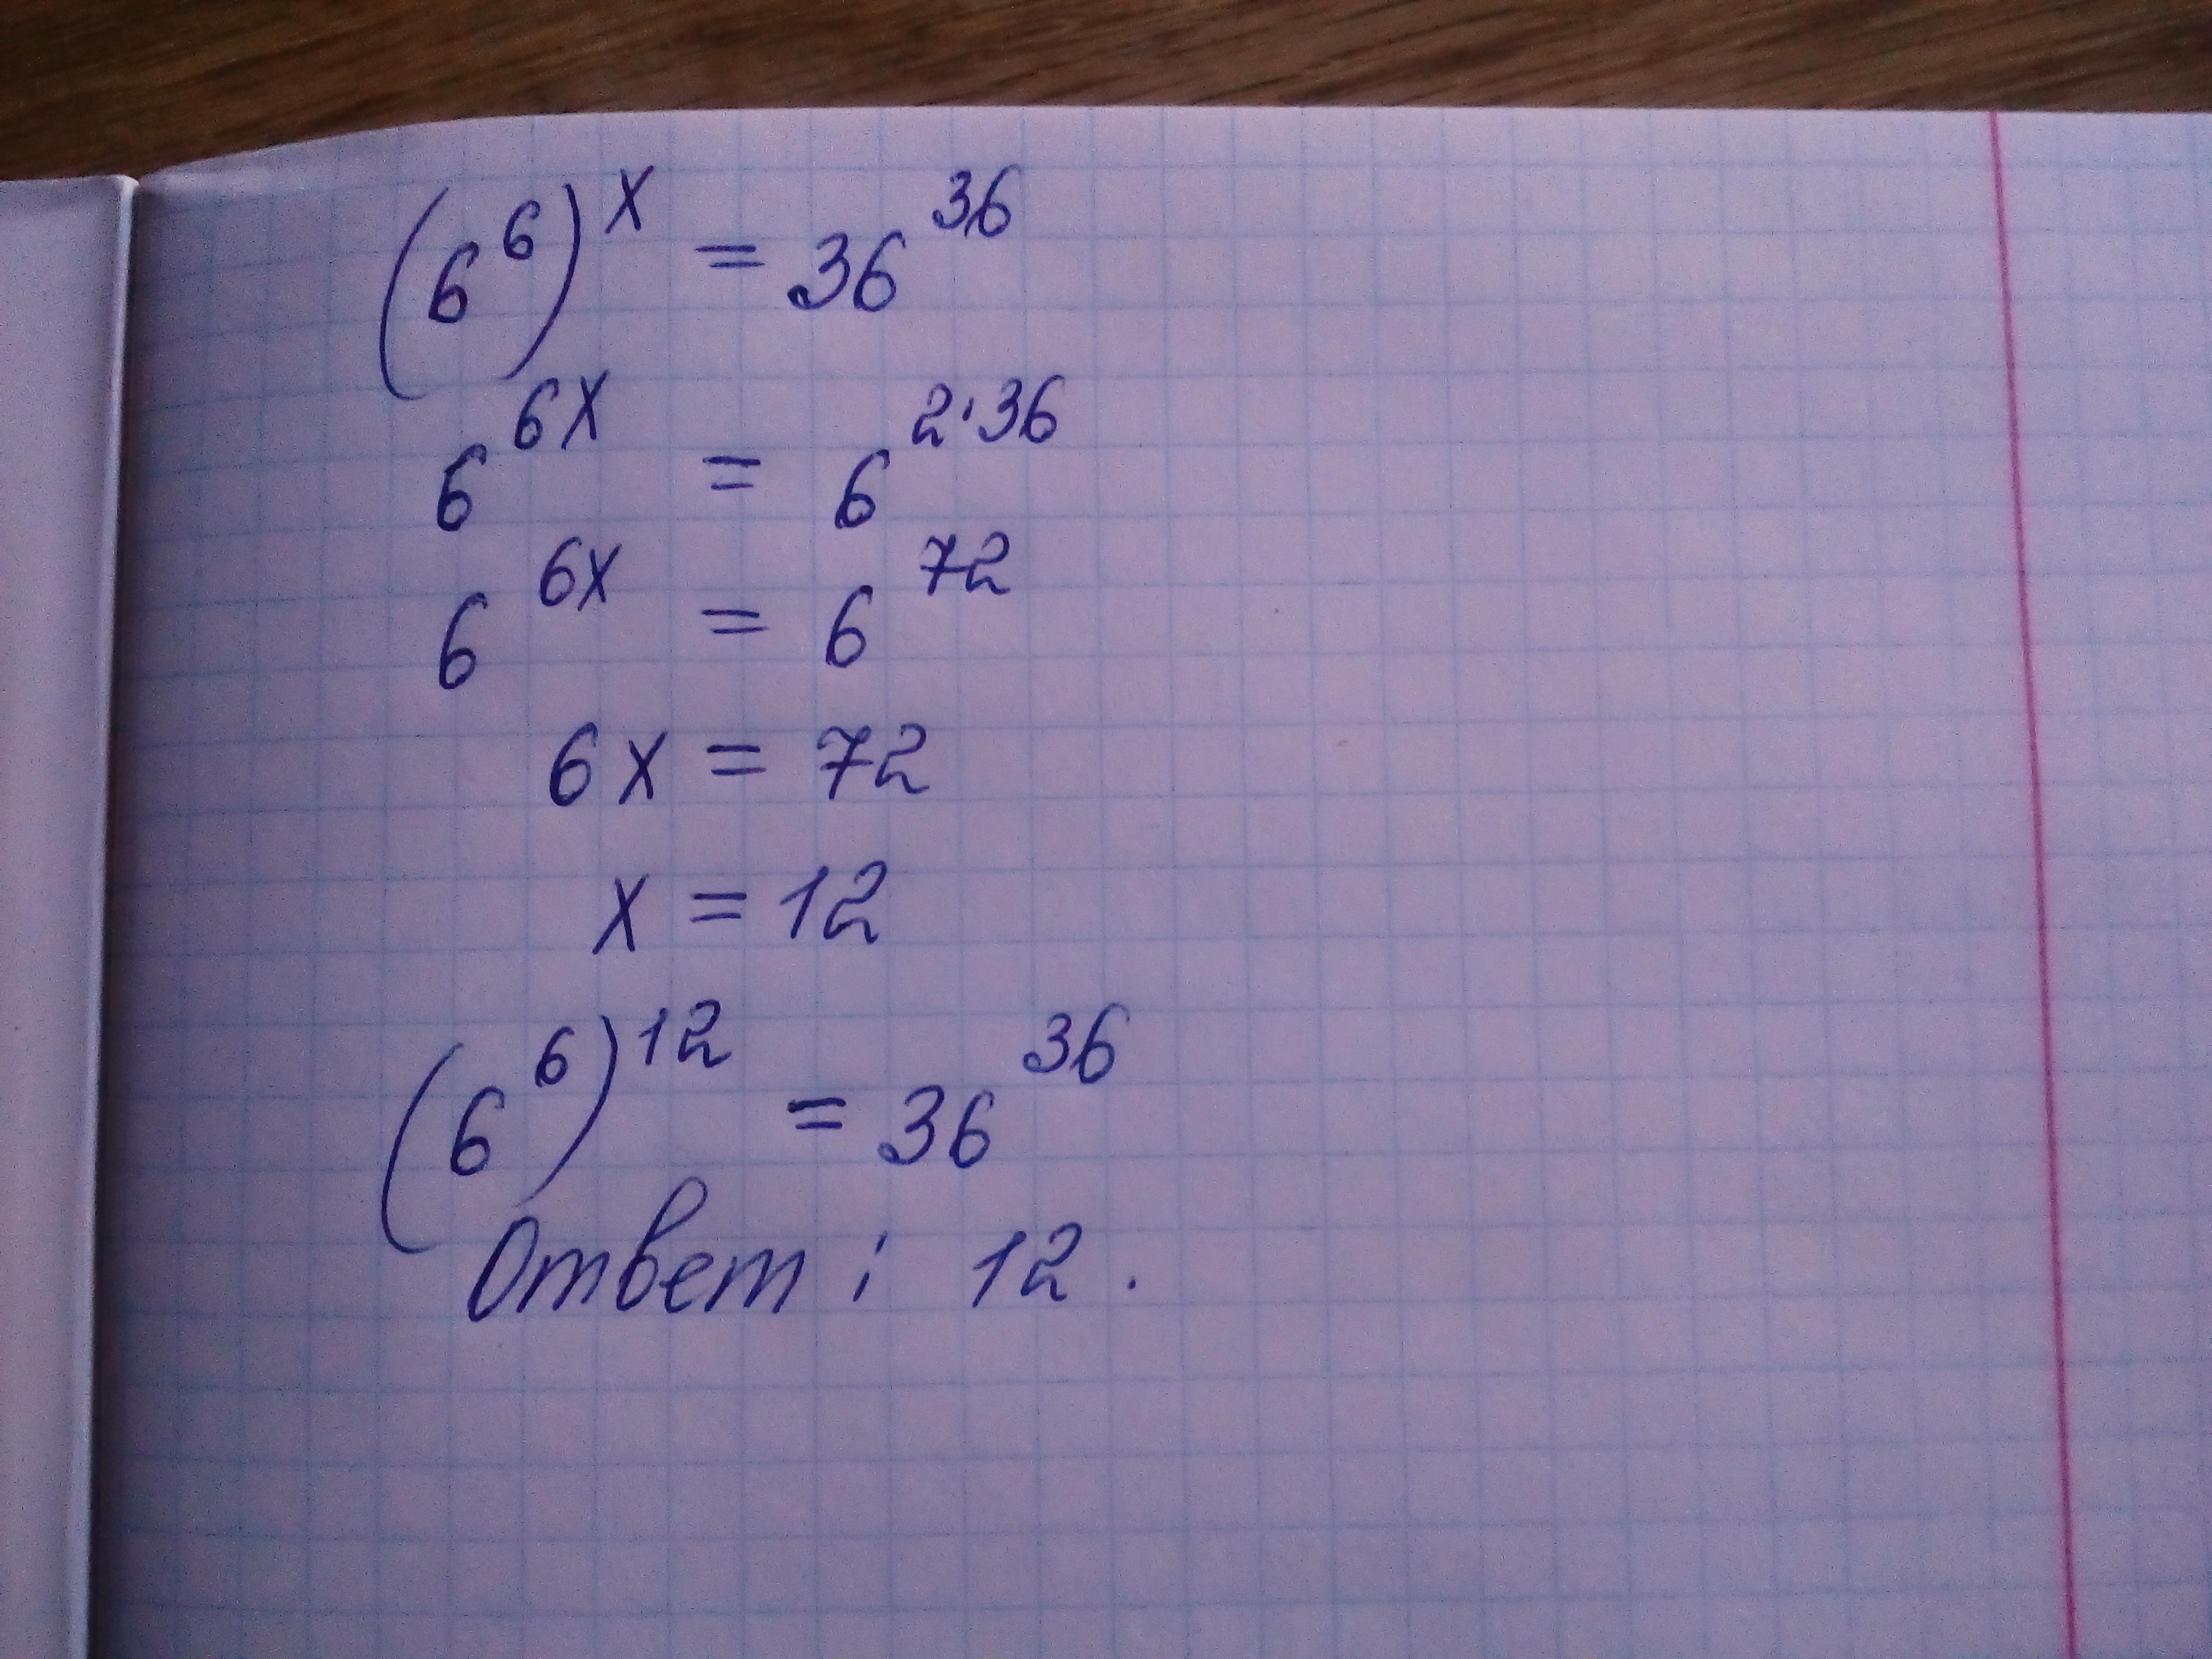 (6⁶)ˣ = 36³⁶
6⁶ˣ = 6²·³⁶
6⁶ˣ = 6⁷²
6x = 72
x = 12
(6⁶)¹² = 36³⁶
Ответ: 12.